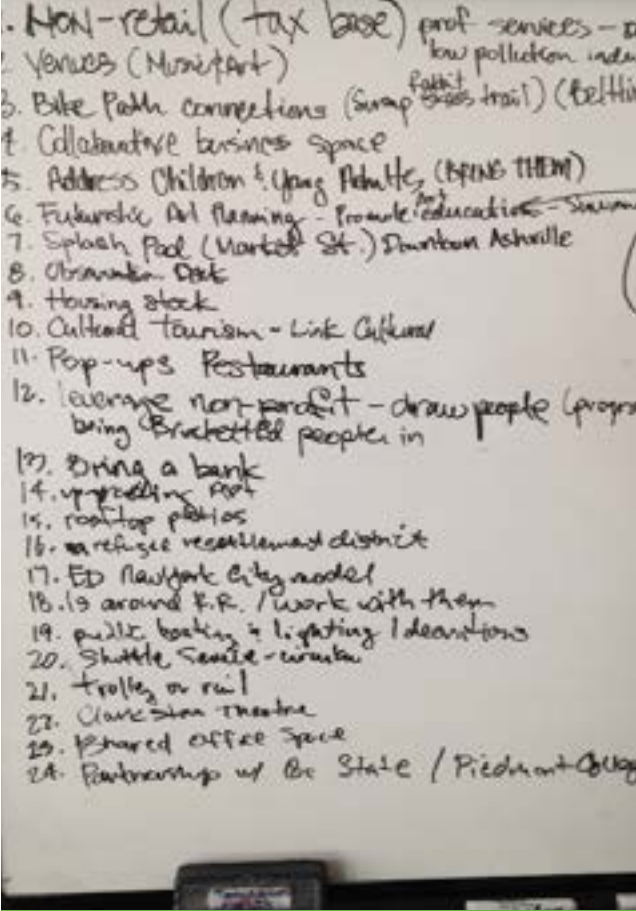 1. NON-retail (tax base) prof services -
low pollution
2 Venues (Music & Art)
3. Bike Path connections (Swap trail) (Beltli
4. Collaborative business space
5. Address Children & Young Adults, (BRING THEM)
6. Futuristic Art Planning - Promote Art education -
7. Splash Pad (Market St.) Downtown Ashville
8. Observation Deck
9. Housing stock
10. Cultural Tourism - Link Cultural
11. Pop-ups Restaurants
12. leverage non-profit - draw people (progr
being people in
13. Bring a bank
14. upgrading
15. rooftop patios
16. refugee resettlement district
17. ED New York City model
18. is around R.R. / work with them
19. public & lighting /
20. Shuttle Service -
21. trolley or rail
22. Clarkston Theatre
23. Shared office Space
24. Partnership w/ State / Piedmont Colleg